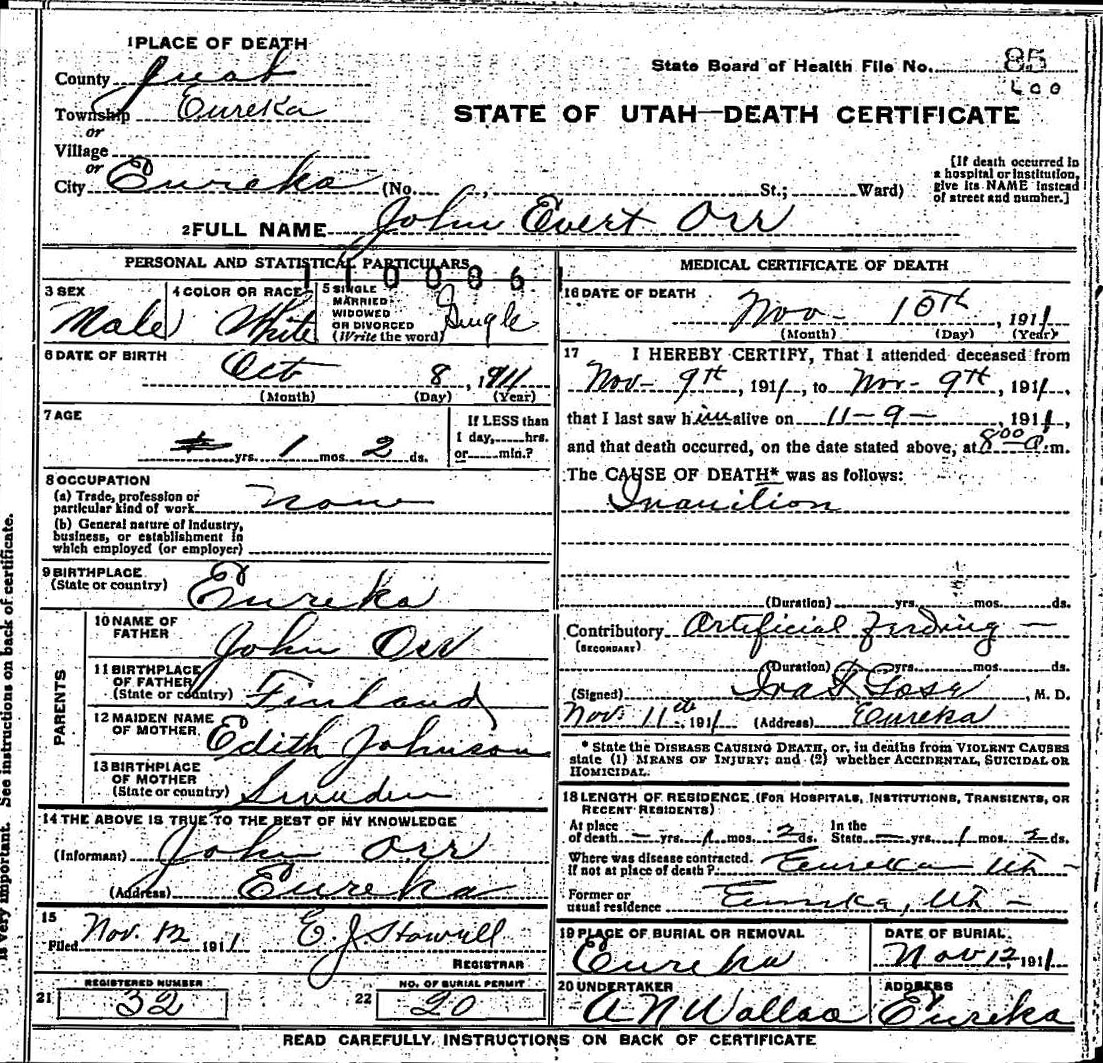 1 PLACE OF DEATH
County Juab
State Board of Health File No. 85
600
Township Eureka
or
Village
or
City Eureka (No. , St.; Ward)
STATE OF UTAH—DEATH CERTIFICATE
[If death occurred in
a hospital or institution,
give its NAME instead
of street and number.]
2 FULL NAME John Evert Orr
PERSONAL AND STATISTICAL PARTICULARS
1100861
3 SEX
Male
4 COLOR OR RACE
White
5 SINGLE
MARRIED
WIDOWED
OR DIVORCED
(Write the word)
Single
6 DATE OF BIRTH
Oct 8, 1911
(Month) (Day) (Year)
7 AGE
yrs. 1 mos. 2 ds.
If LESS than
1 day, hrs.
or min.?
8 OCCUPATION
(a) Trade, profession or
particular kind of work None
(b) General nature of Industry,
business, or establishment in
which employed (or employer)
9 BIRTHPLACE
(State or country) Eureka
PARENTS
10 NAME OF
FATHER John Orr
11 BIRTHPLACE
OF FATHER
(State or country) Finland
12 MAIDEN NAME
OF MOTHER Edith Johnson
13 BIRTHPLACE
OF MOTHER
(State or country) Sweeden
14 THE ABOVE IS TRUE TO THE BEST OF MY KNOWLEDGE
(Informant) John Orr
(Address) Eureka
15
Filed Nov. 12 1911 E. J. Howell
REGISTRAR
21 REGISTERED NUMBER
32
22 NO. OF BURIAL PERMIT
20
MEDICAL CERTIFICATE OF DEATH
16 DATE OF DEATH
Nov - 10th, 1911
(Month) (Day) (Year)
17 I HEREBY CERTIFY, That I attended deceased from
Nov - 9th, 1911, to Nov - 9th, 1911,
that I last saw him alive on 11-9-, 1911,
and that death occurred, on the date stated above, at 8:00 a.m.
The CAUSE OF DEATH* was as follows:
Inanition
(Duration) yrs. mos. ds.
Contributory Artificial feeding —
(SECONDARY)
(Duration) yrs. mos. ds.
(Signed) , M. D.
Nov. 11th 1911 (Address) Eureka
* State the DISEASE CAUSING DEATH, or, in deaths from VIOLENT CAUSES
state (1) MEANS OF INJURY; and (2) whether ACCIDENTAL, SUICIDAL OR
HOMICIDAL.
18 LENGTH OF RESIDENCE (FOR HOSPITALS, INSTITUTIONS, TRANSIENTS, OR
RECENT RESIDENTS)
At place
of death – yrs. 1 mos. 2 ds.
In the
State – yrs. 1 mos. 2 ds.
Where was disease contracted.
If not at place of death? Eureka Ut -
Former or
usual residence Eureka, Ut -
19 PLACE OF BURIAL OR REMOVAL
Eureka
DATE OF BURIAL
Nov 12, 1911
20 UNDERTAKER
A N Wallac
ADDRESS
Eureka
READ CAREFULLY INSTRUCTIONS ON BACK OF CERTIFICATE
is very important. See instructions on back of certificate.